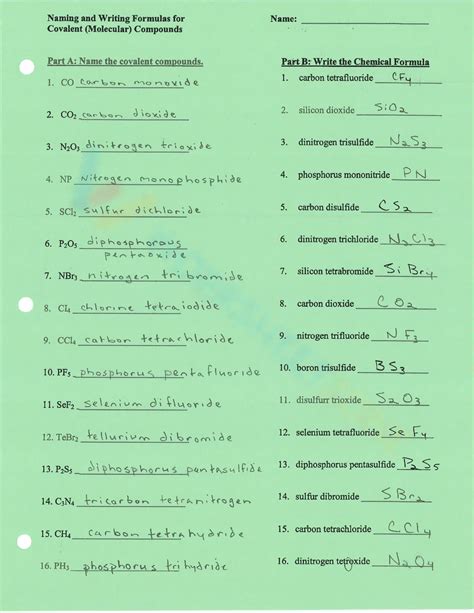 Naming and Writing Formulas for
Covalent (Molecular) Compounds
Name:
Part A: Name the covalent compounds.
1. CO carbon monoxide
2. CO₂ carbon dioxide
3. N₂O₃ dinitrogen trioxide
4. NP Nitrogen monophosphide
5. SCl₂ sulfur dichloride
6. P₂O₅ diphosphorous
pentaoxide
7. NBr₃ nitrogen tribromide
8. CI₄ chlorine tetraiodide
9. CCl₄ carbon tetrachloride
10. PF₅ phosphorus pentafluoride
11. SeF₂ selenium difluoride
12. TeBr₂ tellurium dibromide
13. P₂S₅ diphosphorus pentasulfide
14. C₃N₄ tricarbon tetranitrogen
15. CH₄ carbon tetrahydride
16. PH₃ phosphorus trihydride
Part B: Write the Chemical Formula
1. carbon tetrafluoride CF₄
2. silicon dioxide SiO₂
3. dinitrogen trisulfide N₂S₃
4. phosphorus mononitride PN
5. carbon disulfide CS₂
6. dinitrogen trichloride N₂Cl₃
7. silicon tetrabromide SiBr₄
8. carbon dioxide CO₂
9. nitrogen trifluoride NF₃
10. boron trisulfide BS₃
11. disulfurr trioxide S₂O₃
12. selenium tetrafluoride SeF₄
13. diphosphorus pentasulfide P₂S₅
14. sulfur dibromide SBr₂
15. carbon tetrachloride CCl₄
16. dinitrogen tetroxide N₂O₄